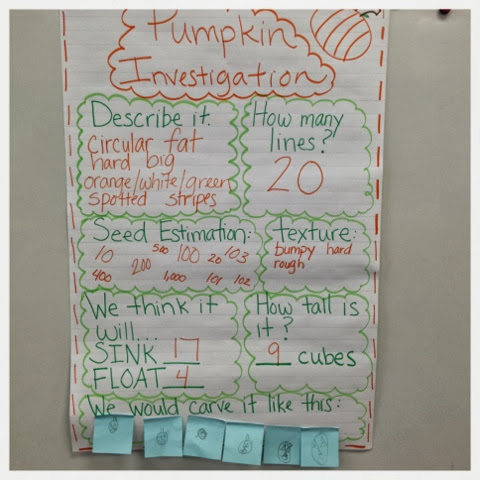 Pumpkin
Investigation
Describe it:
circular fat
hard big
orange/white/green
spotted stripes
How many
lines?
20
Seed Estimation:
10 500 100 20 103
400 200 1,000 101 102
texture:
bumpy hard
rough
We think it
will...
SINK 17
FLOAT 4
How tall is
it?
9 cubes
We would carve it like this: